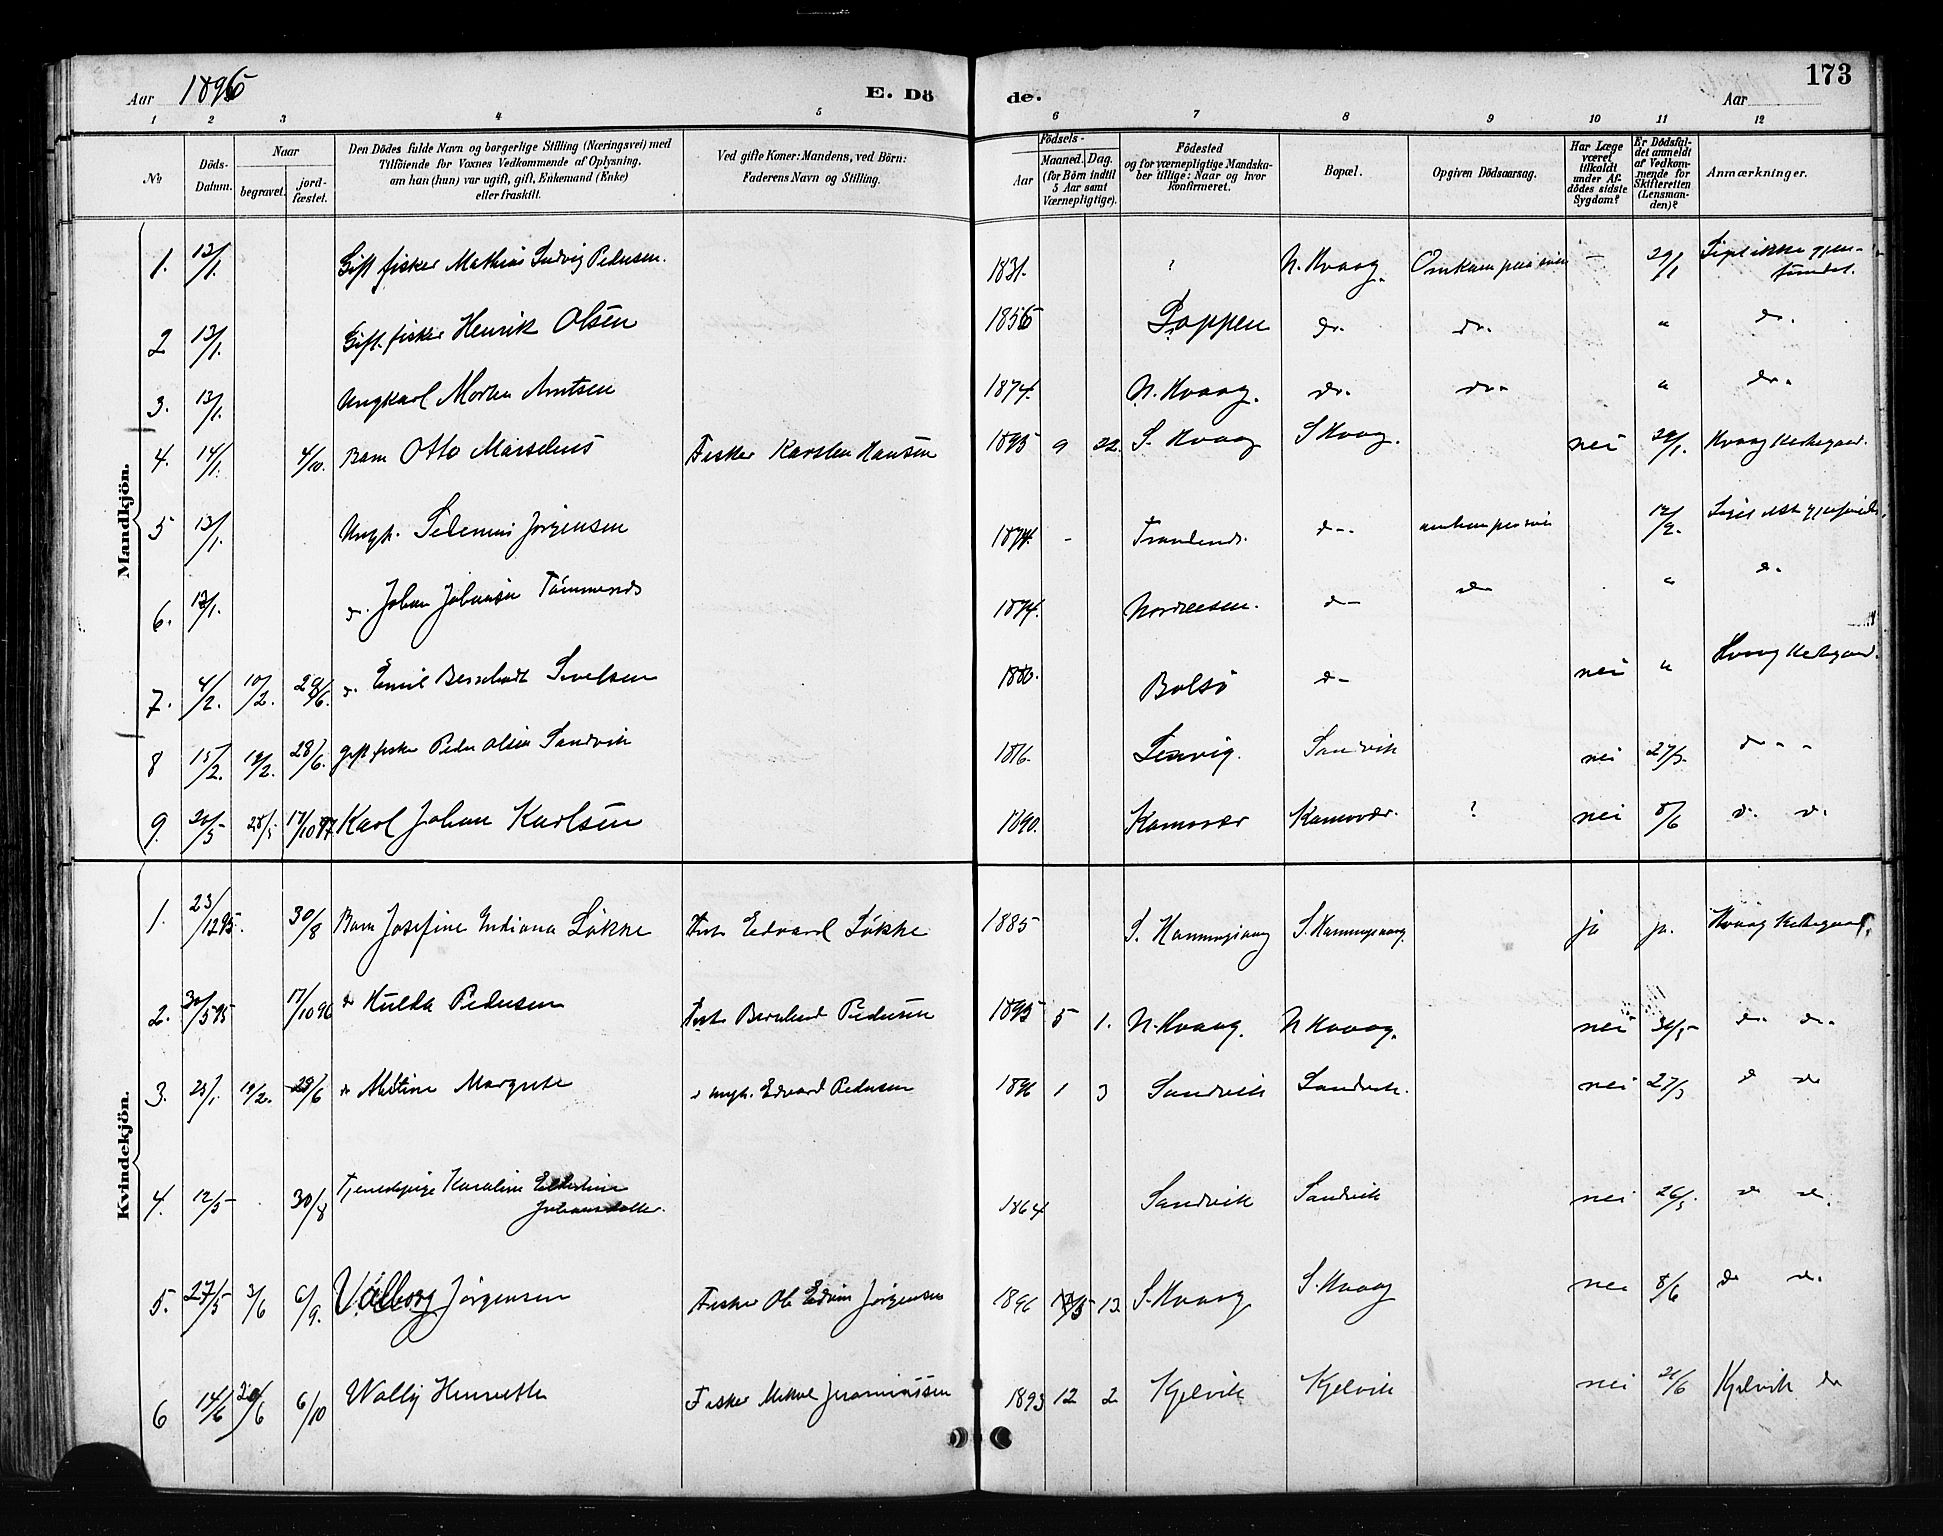 Aar 1896
E. Döde.
173
Aar
1 2 3 4 5 6 7 8 9 10 11 12
№
Döds-Datum.
Naar
begravet.
jord-fæstet.
Den Dödes fulde Navn og borgerlige Stilling (Næringsvei) med
Tilföiende for Voxnes Vedkommende af Oplysning,
om han (hun) var ugift, gift, Enkemand (Enke)
eller fraskilt.
Ved gifte Koner: Mandens, ved Börn:
Faderens Navn og Stilling.
Födsels-
Aar
Maaned. Dag.
(for Börn indtil
5 Aar samt
Værnepligtige).
Födested
og for værnepligtige Mandska-
ber tillige: Naar og hvor
konfirmeret.
Bopæl.
Opgiven Dödsaarsag.
Har Læge
været
tilkaldt
under Af-
dödes sidste
Sygdom?
Er Dödsfal-
det anmeldt
af Vedkom-
mende for
Skifteretten
(Lensman-
den)?
Anmærkninger.
Mandkjön.
1. 13/1. Gift fisker Mathias Ludvig Pedersen. 1831. ? N. Kvaag. Omkom paa söen – 29/1 Liget ikke gjen-
fundet.
2 13/1. Gift. fisker Henrik Olsen 1856 Loppen do. do. " do.
3. 13/1. Ungkarl Morten Arntsen 1874. N. Kvaag. do. do. " do.
4. 14/1. 4/10. Barn Otto Marselius Fisker Karsten Hansen 1895 9 22. S. Kvaag S Kvaag. nei 29/1. Kvaag Kirkegaard.
5 13/1. Ungk. Jörgensen 1874. – d– omkom paa söen 12/2. Liget ikke gjenfundet.
6. 13/1. d. Johan Johansen 1874. d– d– " d.
7. 4/2. 10/2. 29/6. d. Emil 1880. Bolsö d– nei " Kvaag Kirkegaard.
8 15/2. 19/2. 28/6. gift fisker Peder Olsen Sandvik 1816. Lenvig. Sandvik nei 27/3. d– –
9. 20/5 25/5 17/10 97. Karl Johan Karlsen 1890. Kamøvær Kamøvær. ? nei 8/6 d. d.
Kvindekjön.
1. 23/12 95. 30/8 Barn Josefine Indiana Løkke Edvard Løkke 1885 S. Honningsvaag S. Honningsvaag. ja ja. Kvaag Kirkegaard.
2. 30/5 95 17/10 96 d Hulda Pedersen Bernhard Pedersen 1895 5 1. N. Kvaag. N Kvaag. nei 30/5 d. d.
3. 25/1. 19/2. 28/6 d Margrete d ungk. Edvard Pedersen 1896 1 3 Sandvik Sandvik. nei 27/3 d d
4. 12/5 30/8 Tjenestepige Karoline
Johansdatter. 1864 Sandvik Sandvik nei 26/5 d d.
5. 27/5 3/6 6/9. Valborg Jörgensen Fisker Ole Edvin Jörgensen 1896 12 S. Kvaag S. Kvaag nei 8/6 d d.
6 14/6 20/6 6/10 Wally Henriette Fisker Mikal Jeramiassen 1893 12 2 Kjelvik Kjelvik nei 21/6 Kjelvik d